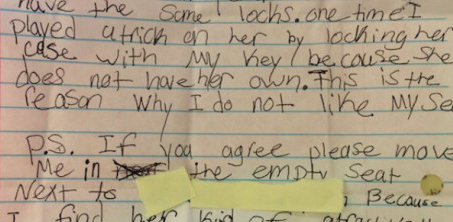 have the same locks. one time I
played a trick on her by locking her
case with my key because she
does not have her own. This is the
reason why I do not like My Se
P.S. If you agree please move
Me in the empty seat
Next to ; Because
I find her kind of